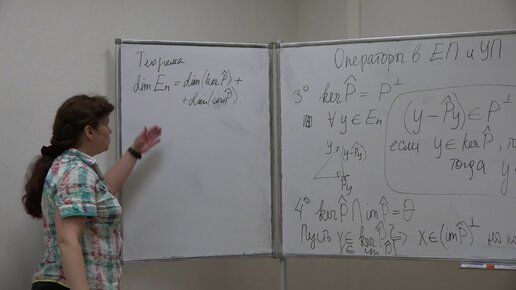 Теорема
dim Eₙ = dim(ker P̂) +
+ dim(im P̂).
Операторы в ЕП и УП
3° ker P̂ = P^⊥
∀ y ∈ Eₙ
(y − P̂y) ∈ P^⊥
если y ∈ ker P̂,
тогда y
y
(y − P̂y)
P̂y
4° ker P̂ ⋂ im P̂ = θ
Пусть x ∈ ker P̂ ⇒ x ∈ (im P̂)^⊥
∈ im P̂